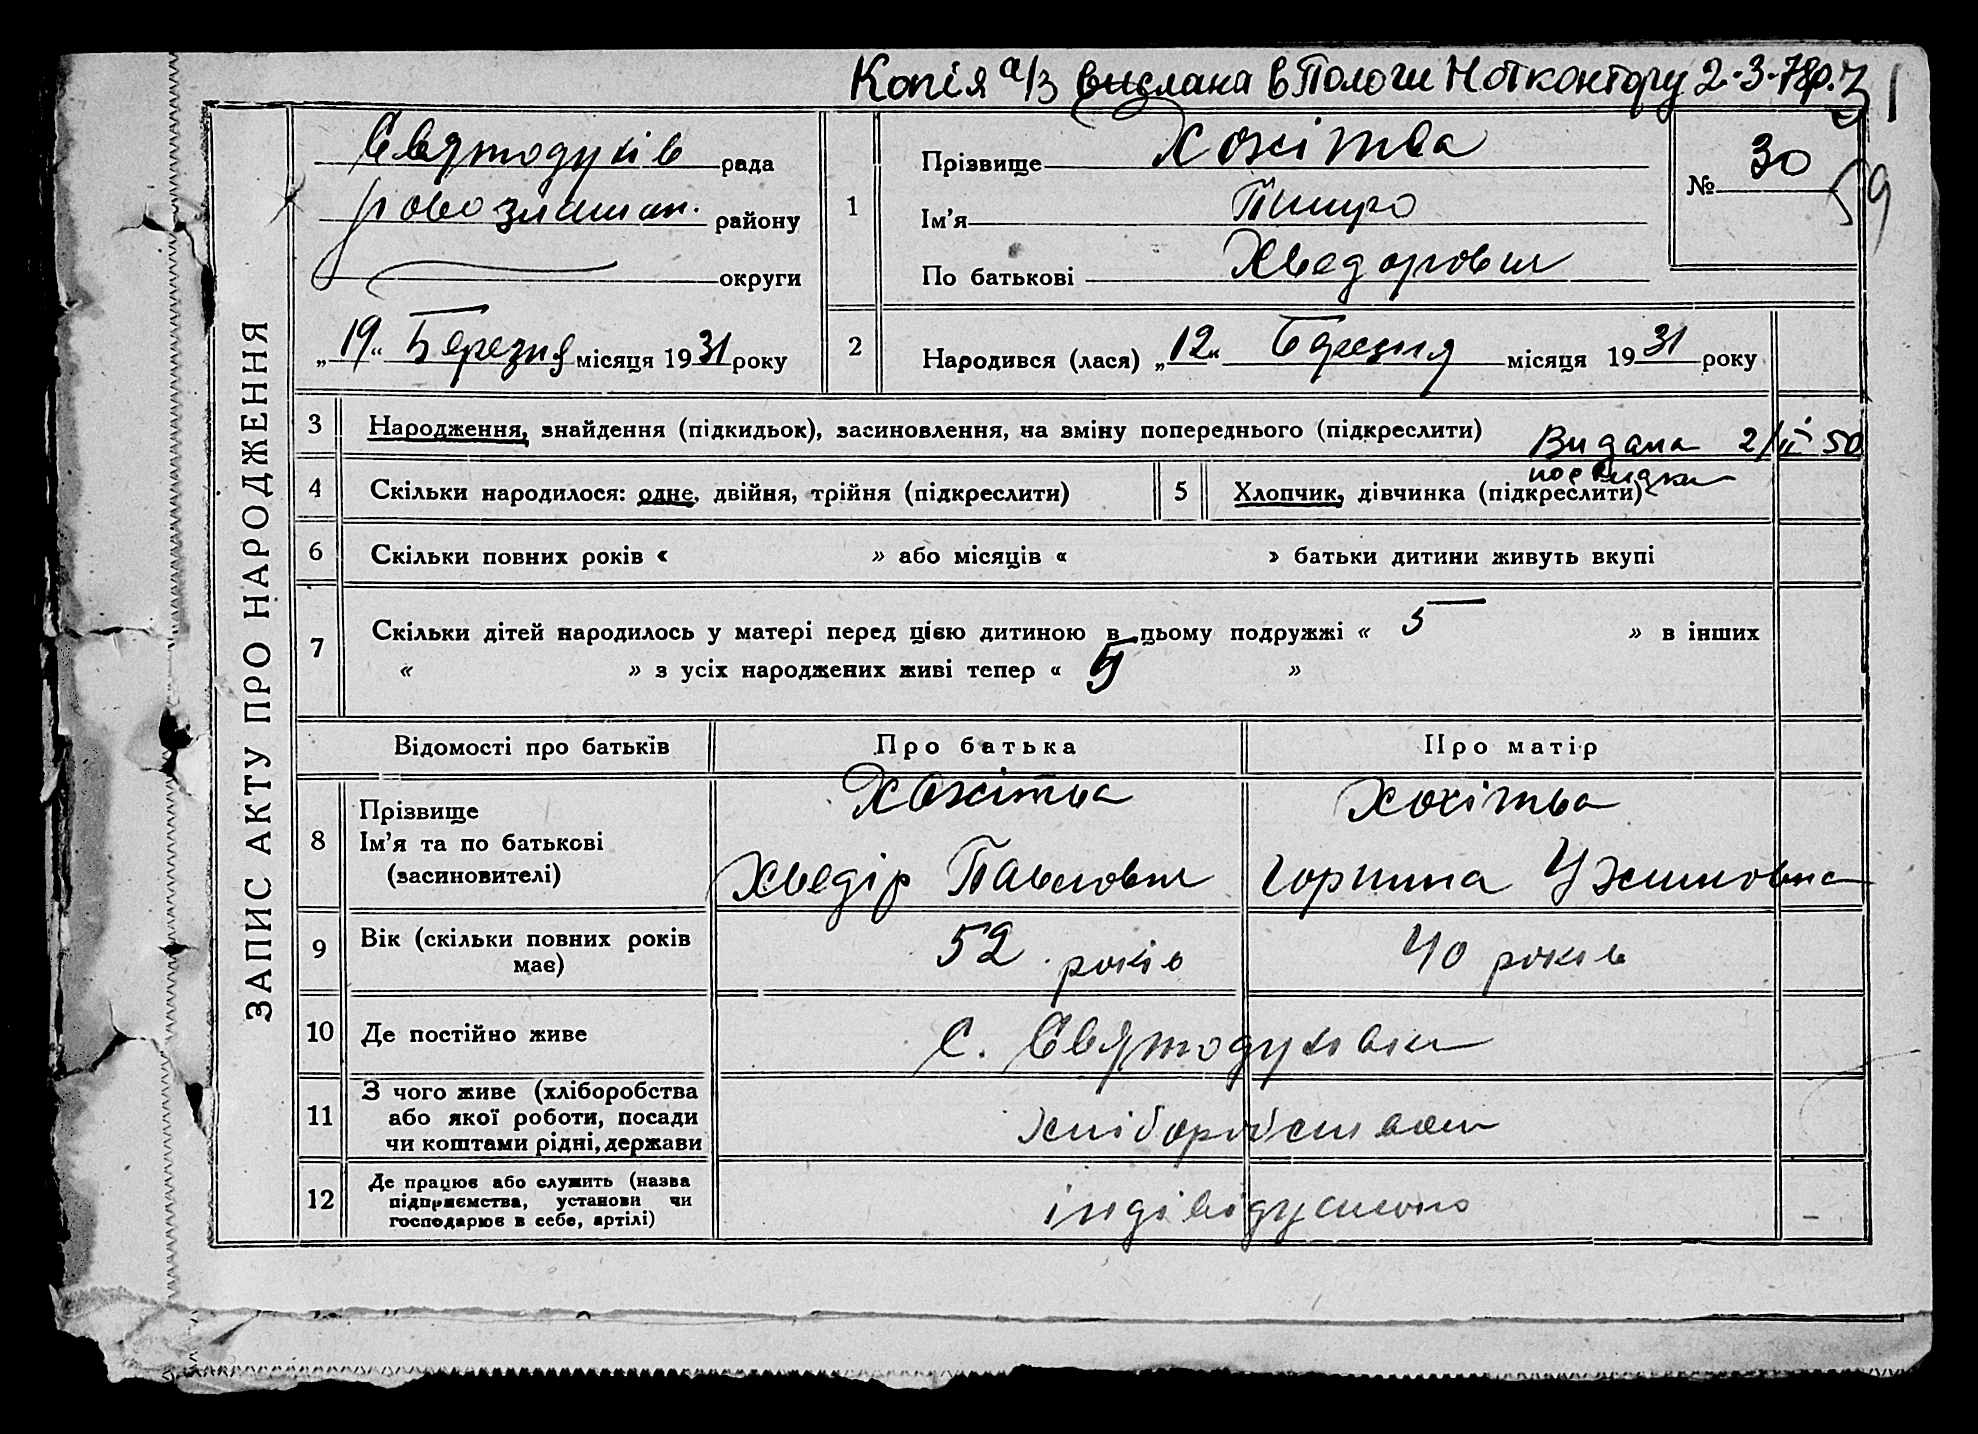 Копія а/з вислана в Пологи Нотконтору 2-3-78р.
Святодухів рада
району
округи
„19“ Березня місяця 1931 року
1
Прізвище Хохітва
Ім'я
По батькові Хведорович
№ 30
59
2
Народився (лася) „12“ Березня місяця 1931 року
ЗАПИС АКТУ ПРО НАРОДЖЕННЯ
3 Народження, знайдення (підкидьок), засиновлення, на зміну попереднього (підкреслити)
Видана 2/ІІ 50
посвидки
4 Скільки народилося: одне, двійня, трійня (підкреслити) 5 Хлопчик, дівчинка (підкреслити)
6 Скільки повних років « » або місяців « » батьки дитини живуть вкупі
7 Скільки дітей народилось у матері перед цією дитиною в цьому подружжі « 5 » в інших
« » з усіх народжених живі тепер « 5 »
Відомості про батьків Про батька Про матір
8 Прізвище
Ім'я та по батькові
(засиновителі)
Хохітва
Хведір Павлович
Хохітва
Горпина
9 Вік (скільки повних років
має)
52 років
40 років
10 Де постійно живе
С. Святодухівки
11 З чого живе (хліборобства
або якої роботи, посади
чи коштами рідні, держави
хліборобством
12 Де працює або служить (назва
підприємства, установи чи
господарює в себе, артілі)
індівідуально
–